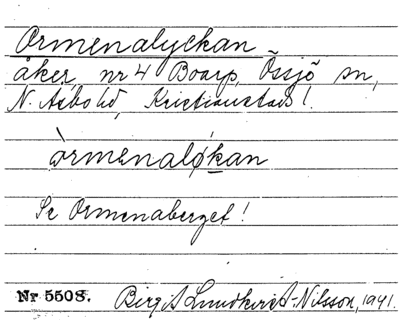 Ormenalyckan
åker, nr 4 Boarp, Össjö sn,
N. Åsbo hd, Kristianstads l.
òrmenaløkan
Se Ormenaberget!
Nr 5508. Birgit Lundkvist-Nilsson, 1941.